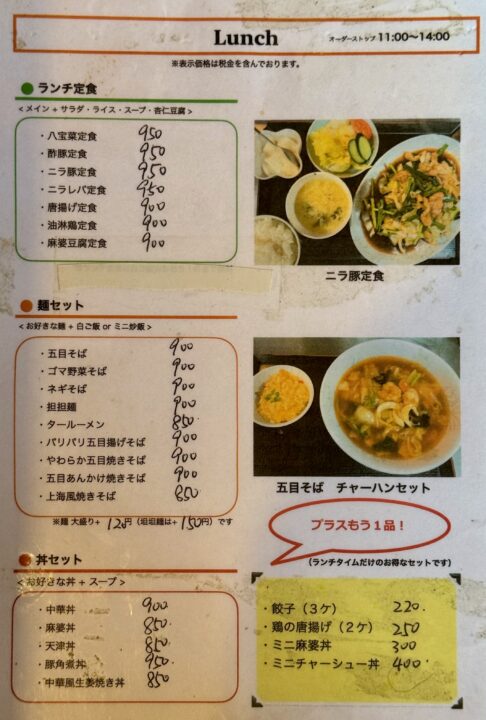 Lunch
オーダーストップ 11:00〜14:00
※表示価格は税金を含んでおります。
ランチ定食
< メイン + サラダ・ライス・スープ・杏仁豆腐 >
・八宝菜定食 950
・酢豚定食 950
・ニラ豚定食 950
・ニラレバ定食 950
・唐揚げ定食 900
・油淋鶏定食 900
・麻婆豆腐定食 900
ニラ豚定食
麺セット
< お好きな麺 + 白ご飯 or ミニ炒飯 >
・五目そば 900
・ゴマ野菜そば 900
・ネギそば 900
・担担麺 900
・タールーメン 850
・パリパリ五目揚げそば 900
・やわらか五目焼きそば 900
・五目あんかけ焼きそば 900
・上海風焼きそば 850
※麺 大盛り+ 120円（坦坦麺は+ 150円）です
五目そば チャーハンセット
プラスもう１品！
（ランチタイムだけのお得なセットです）
丼セット
< お好きな丼 + スープ >
・中華丼 900
・麻婆丼 850
・天津丼 850
・豚角煮丼 950
・中華風生姜焼き丼 850
・餃子（３ケ） 220
・鶏の唐揚げ（２ケ） 250
・ミニ麻婆丼 300
・ミニチャーシュー丼 400